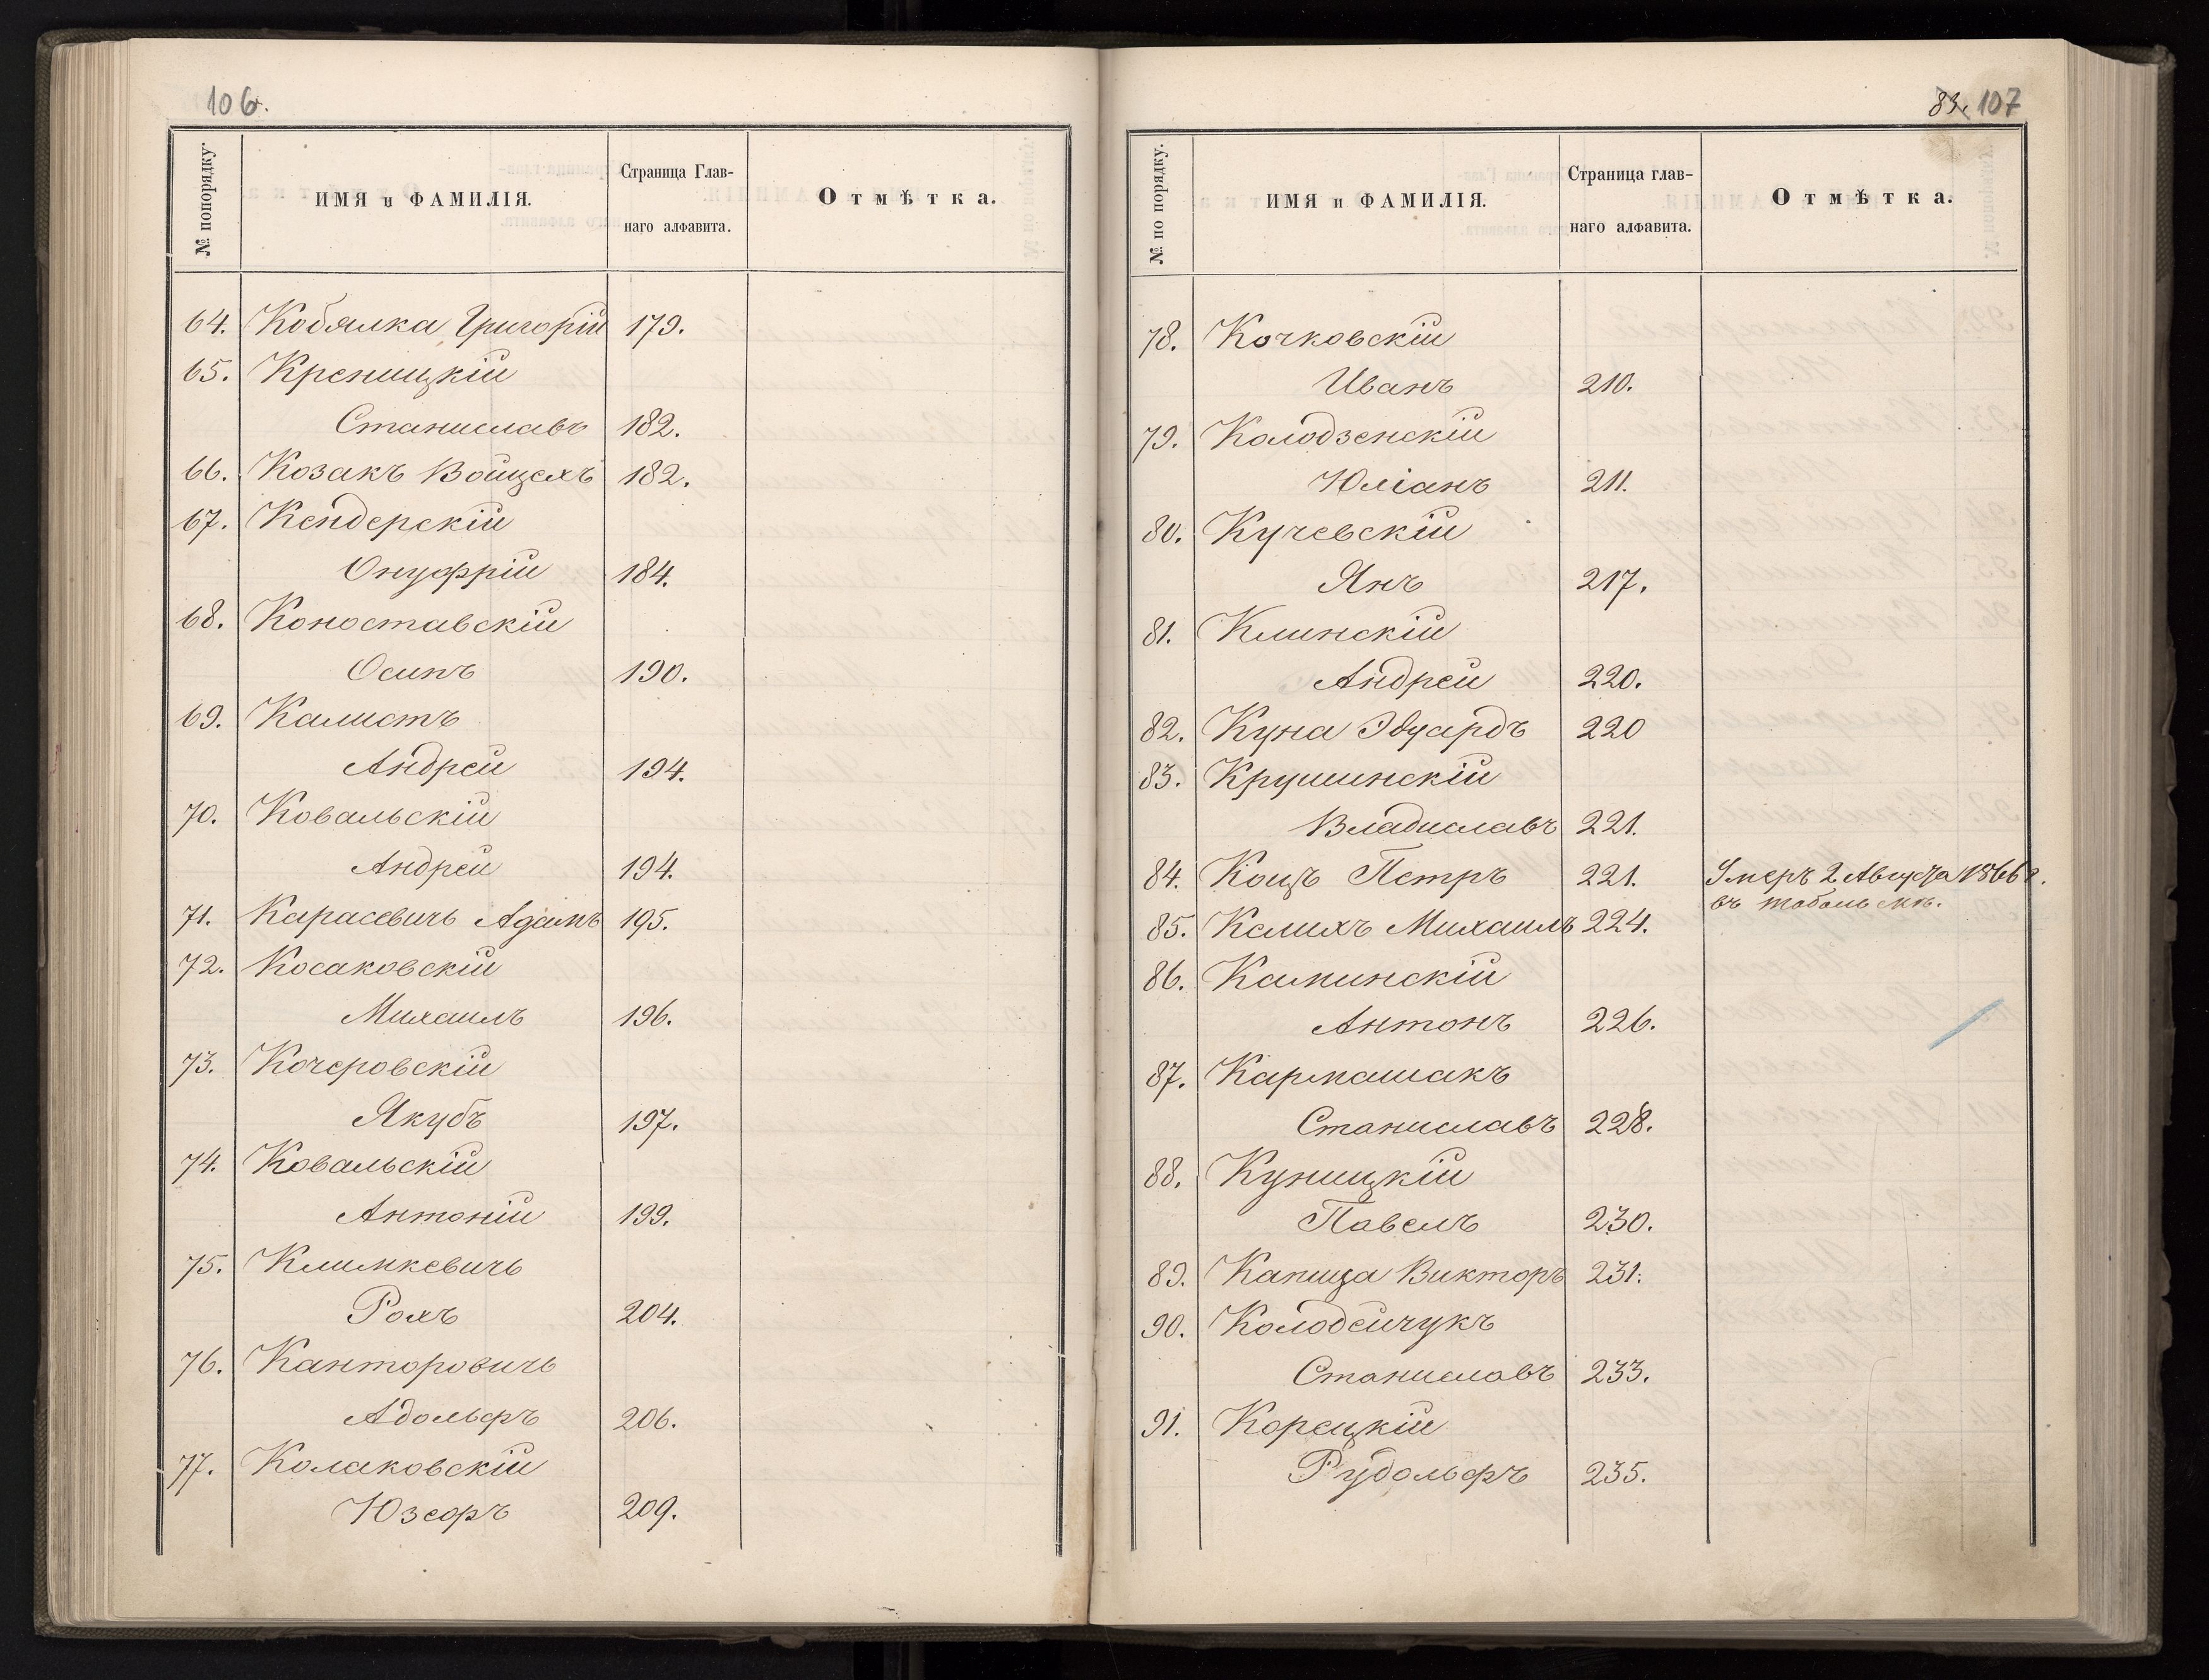 106.
№ попорядку.
ИМЯ и ФАМИЛІЯ.
Страница Глав-
наго алфавита.
Отмѣтка.
64. Кобялка Григорій 179.
65. Креницкій
Станиславъ 182.
66. Козакъ Войцехъ 182.
67. Кендерскій
Онуфрій 184.
68. Коноставскій
Осипъ 190.
69. Калистъ
Андрей 194.
70. Ковальскій
Андрей 194.
71. Карасевичъ Адамъ 195.
72. Косаковскій
Михаилъ 196.
73. Кочеровскій
Якубъ 197.
74. Ковальскій
Антоній 199.
75. Климкевичъ
Рохъ 204.
76. Канторовичъ
Адольфъ 206.
77. Колаковскій
Юзефъ 209.
83. 107
№ по порядку.
ИМЯ и ФАМИЛІЯ.
Страница глав-
наго алфавита.
Отмѣтка.
78. Кочковскій
Иванъ 210.
79. Колодзенскій
Юліанъ 211.
80. Кучевскій
Янъ 217.
81. Клинскій
Андрей 220.
82. Куна Эдуардъ 220
83. Крушинскій
Владиславъ 221.
84. Коцъ Петръ 221. Умеръ 2 Августа 1866 г.
въ Тобольскѣ.
85. Келихъ Михаилъ 224.
86. Каминскій
Антонъ 226.
87. Кармашакъ
Станиславъ 228.
88. Куницкій
Павелъ 230.
89. Капица Викторъ 231.
90. Колодейчукъ
Станиславъ 233.
91. Корецкій
Рудольфъ 235.